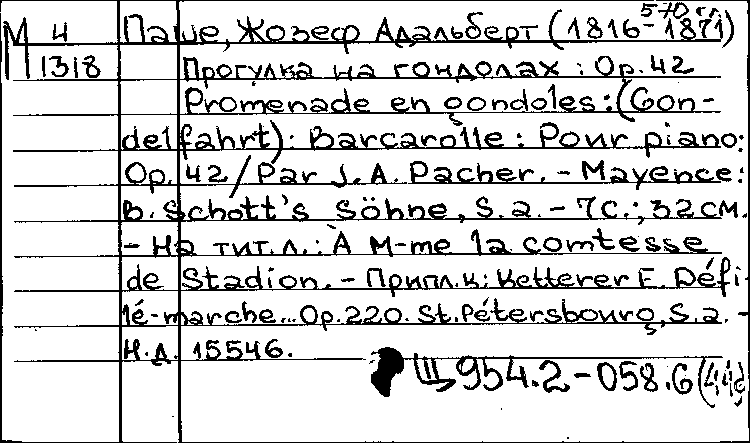 5-70 г.г.
М 4 Паше, Жозеф Адальберт (1816-1871)
1318 Прогулка на гондолах : Op. 42
Promenade en gondoles : (Gon-
delfahrt) : Barcarolle : Pour piano :
Op. 42 / Par J. A. Pacher. - Mayence :
B. Schott's Söhne, S. a. - 7 с. ; 32 см.
- На тит. л. : À M-me la comtesse
de Stadion. - Припл. к : Ketterer E. Défi-
lé-marche... Op. 220. St. Pétersbourg, S. a. -
Н. д. 15546.
Щ954.2-058.6(44